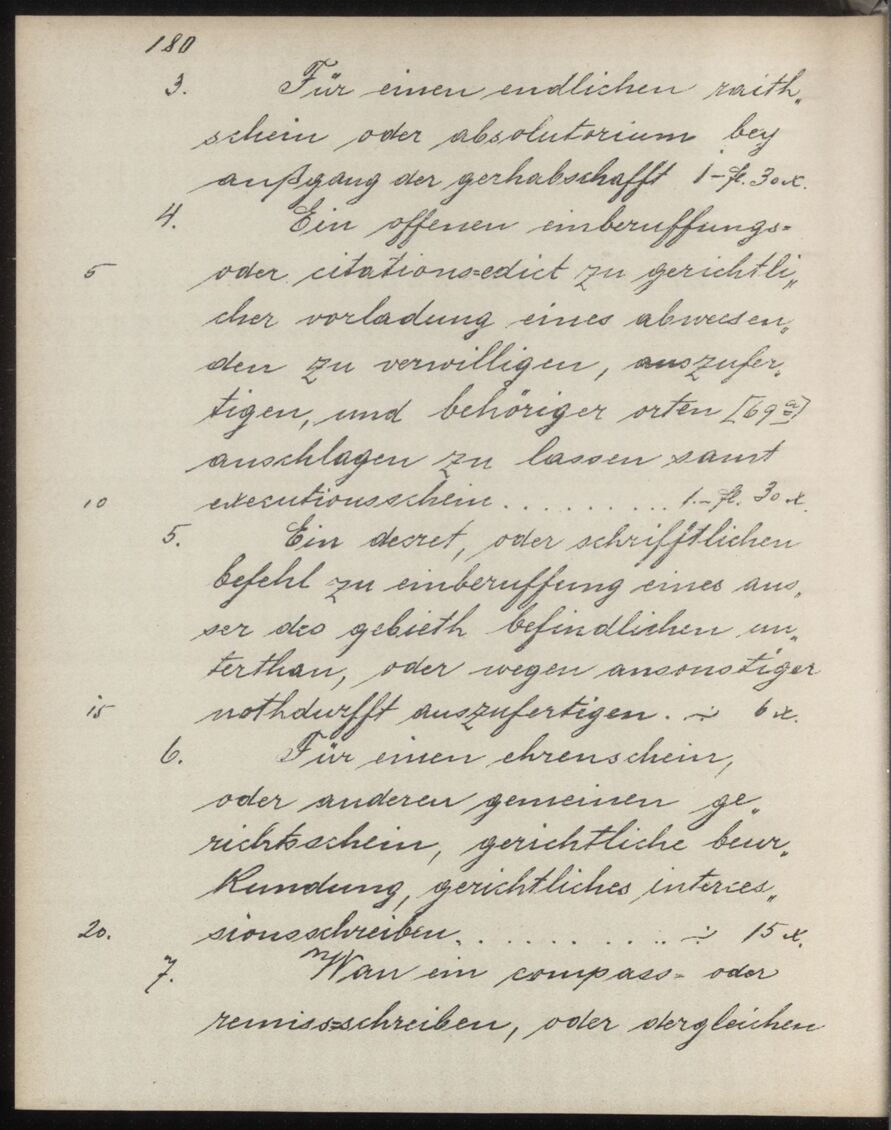 180
3. Für einen endlichen raith„
schein oder absolutorium bey
außgang der gerhabschafft 1-fl. 30x.
4. Ein offenen einberuffungs=
5 oder citations=edict zu gerichtli„
cher vorladung eines abwesen„
den zu verwilligen, auszufer„
tigen, und behöriger orten [69a]
anschlagen zu lassen samt
10 executionsschein.......... 1.-fl. 30x.
5. Ein decret, oder schrifftlichen
befehl zu einberuffung eines aus„
ser des gebieth befindlichen un„
terthan, oder wegen ansonstiger
15 nothdurfft auszufertigen. ∻ 6x.
6. Für einen ehrenschein,
oder anderen gemeinen ge„
richtsschein, gerichtliche beur„
kundung, gerichtliches interces„
20. sionsschreiben........... ∻ 15x.
7. Wan ein compass= oder
remiss=schreiben, oder dergleichen